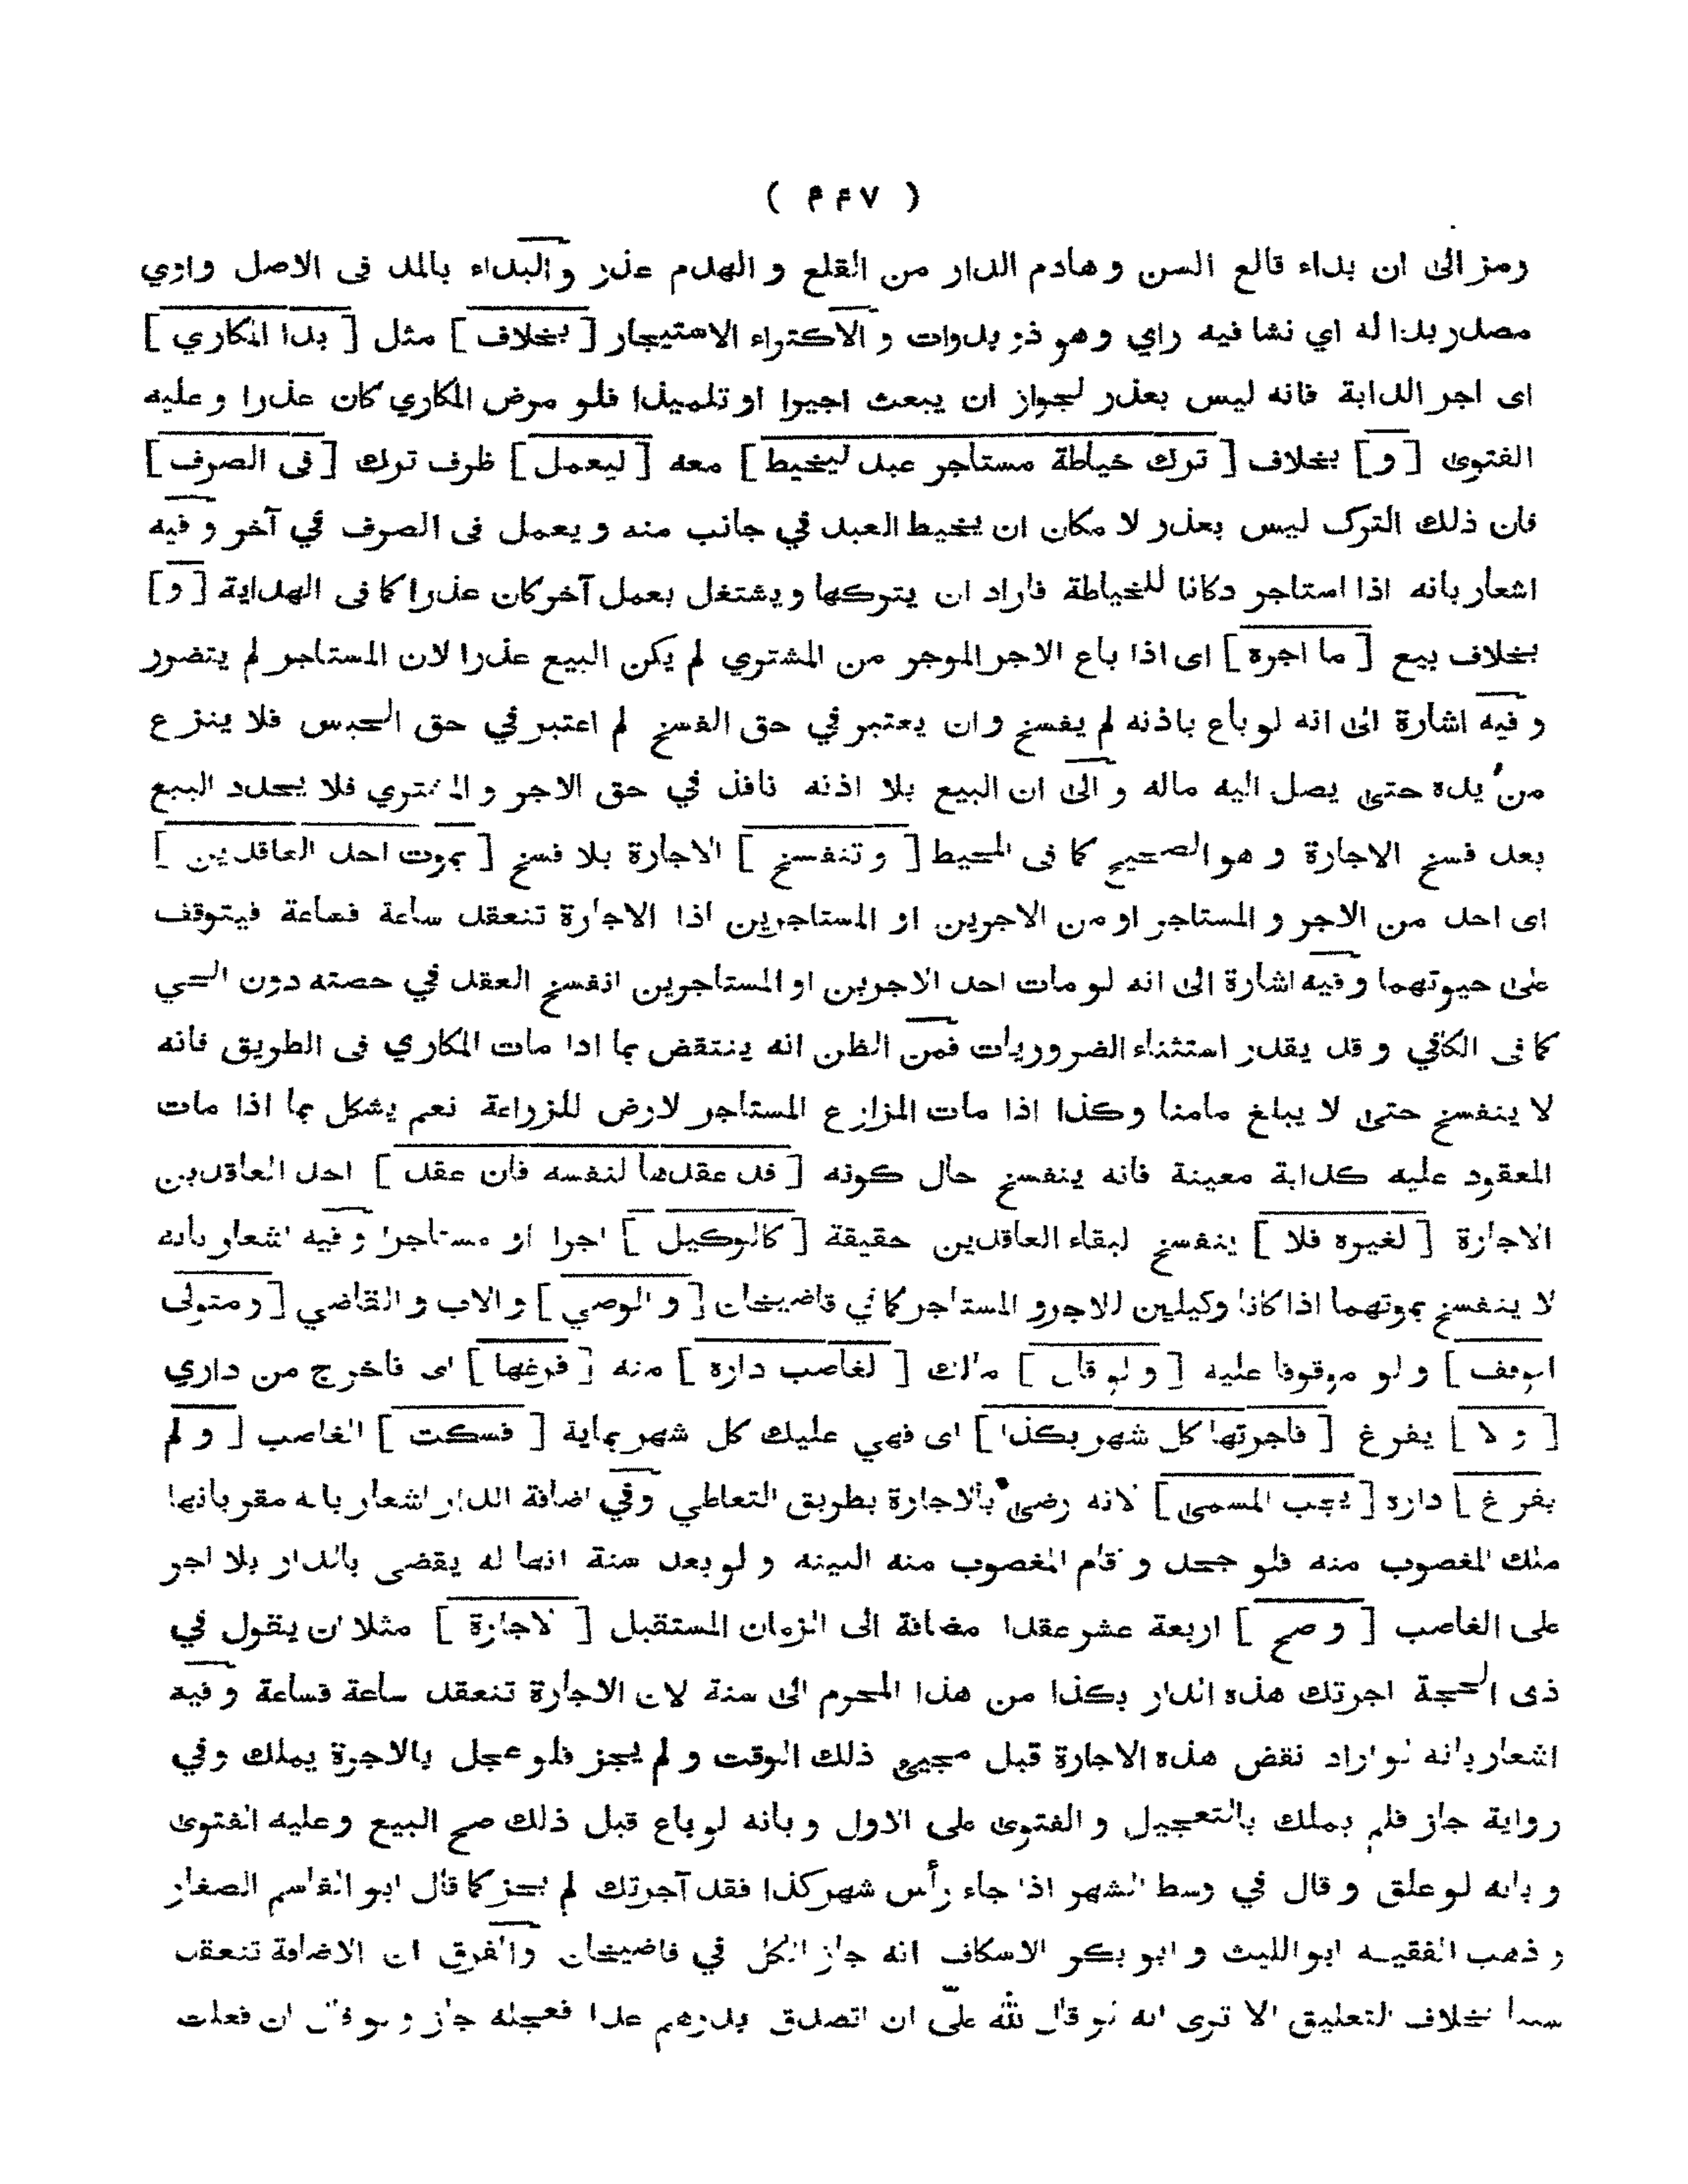 ( ۴۴۷ )
رمز الى ان بداء قالع السن و هادم الدار من القلع و الهدم عذر و البداء بالمد فى الاصل واوي
مصدر بدا له اي نشا فيه راي و هو ذو بدوات و الاكتراء الاستيجار [ بخلاف ] مثل [ بدا المكاري ]
اى اجر الدابة فانه ليس بعذر لجواز ان يبعث اجيرا او تلميذا فلو مرض المكاري كان عذرا و عليه
الفتوى [ و ] بخلاف [ ترك خياطة مستاجر عبد ليخيط ] معه [ ليعمل ] ظرف ترك [ فى الصرف ]
فان ذلك الترك ليس بعذر لا مكان ان يخيط العبد في جانب منه و يعمل فى الصرف في آخر و فيه
اشعار بانه اذا استاجر دكانا للخياطة فاراد ان يتركها و يشتغل بعمل آخر كان عذرا كما فى الهداية [ و ]
بخلاف بيع [ ما اجره ] اى اذا باع الاجر الموجر من المشتري لم يكن البيع عذرا لان المستاجر لم يتضرر
و فيه اشارة الى انه لو باع باذنه لم يفسخ و ان يعتبر في حق الفسخ لم اعتبر في حق الحبس فلا ينزع
من يده حتى يصل اليه ماله و الى ان البيع بلا اذنه نافذ في حق الاجر و المشتري فلا يجدد البيع
بعد فسخ الاجارة و هو الصحيح كما فى المحيط [ و تنفسخ ] الاجارة بلا فسخ [ بموت احد العاقدين ]
اى احد من الاجر و المستاجر او من الاجرين او المستاجرين اذا الاجارة تنعقد ساعة فساعة فيتوقف
على حيوتهما و فيه اشارة الى انه لو مات احد الاجرين او المستاجرين انفسخ العقد في حصته دون الحي
كما فى الكافي و قد يقدر استثناء الضروريات فمن الظن انه ينتقض بما اذا مات المكاري فى الطريق فانه
لا ينفسخ حتى لا يبلغ مامنا و كذا اذا مات المزارع المستاجر لارض للزراعة نعم يشكل بما اذا مات
المعقود عليه كدابة معينة فانه ينفسخ حال كونه [ قد عقدها لنفسه فان عقد ] احد العاقدين
الاجارة [ لغيره فلا ] ينفسخ لبقاء العاقدين حقيقة [ كالوكيل ] اجرا او مستاجرا و فيه اشعار بانه
لا ينفسخ بموتهما اذا كانا وكيلين للاجر و المستاجر كما في قاضيخان [ و الوصي ] و الاب و القاضي [ و متولى
الوقف ] و لو موقوفا عليه [ و لو قال ] مالك [ لغاصب داره ] منه [ فرغها ] اى فاخرج من داري
[ و لا ] يفرغ [ فاجرتها كل شهر بكذا ] اى فهي عليك كل شهر بماية [ فسكت ] الغاصب [ و لم
يفرغ ] داره [ يجب المسمى ] لانه رضى بالاجارة بطريق التعاطي و في اضافة الدار اشعار بانه مقر بانها
ملك المغصوب منه فلو جحد و قام المغصوب منه البينه و لو بعد سنة انها له يقضى بالدار بلا اجر
على الغاصب [ و صح ] اربعة عشر عقدا مضافة الى الزمان المستقبل [ الاجارة ] مثلا ان يقول في
ذى الحجة اجرتك هذه الدار بكذا من هذا المحرم الى سنة لان الاجارة تنعقد ساعة فساعة و فيه
اشعار بانه لو اراد نقض هذه الاجارة قبل مجيئ ذلك الوقت و لم يجز فلو عجل بالاجرة يملك و في
رواية جاز فلم يملك بالتعجيل و الفتوى على الاول و بانه لو باع قبل ذلك صح البيع و عليه الفتوى
و بانه لو علق و قال في وسط الشهر اذا جاء رأس شهر كذا فقد آجرتك لم يجز كما قال ابو القاسم الصفار
و ذهب الفقيه ابو الليث و ابو بكر الاسكاف انه جاز الكل في قاضيخان و الفرق ان الاضافة تنعقد
سببا بخلاف التعليق الا ترى انه لو قال لله عليّ ان اتصدق بدرهم غدا فعجله جاز و لو قال ان فعلت